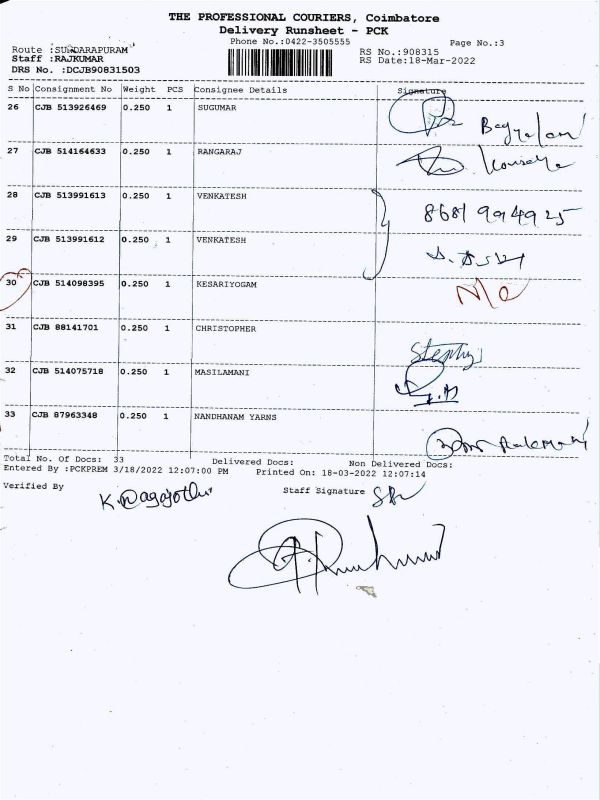 THE PROFESSIONAL COURIERS, Coimbatore
Delivery Runsheet - PCK
Phone No.:0422-3505555
Page No.:3
Route :SUNDARAPURAM
RS No.:908315
Staff :RAJKUMAR
RS Date:18-Mar-2022
DRS No. :DCJB90831503
S No Consignment No Weight PCS Consignee Details Signature
26 CJB 513926469 0.250 1 SUGUMAR
27 CJB 514164633 0.250 1 RANGARAJ
28 CJB 513991613 0.250 1 VENKATESH
29 CJB 513991612 0.250 1 VENKATESH
30 CJB 514098395 0.250 1 KESARIYOGAM N/C
31 CJB 88141701 0.250 1 CHRISTOPHER
32 CJB 514075718 0.250 1 MASILAMANI
33 CJB 87963348 0.250 1 NANDHANAM YARNS
Total No. Of Docs: 33 Delivered Docs: Non Delivered Docs:
Entered By :PCKPREM 3/18/2022 12:07:00 PM Printed On: 18-03-2022 12:07:14
Verified By Staff Signature